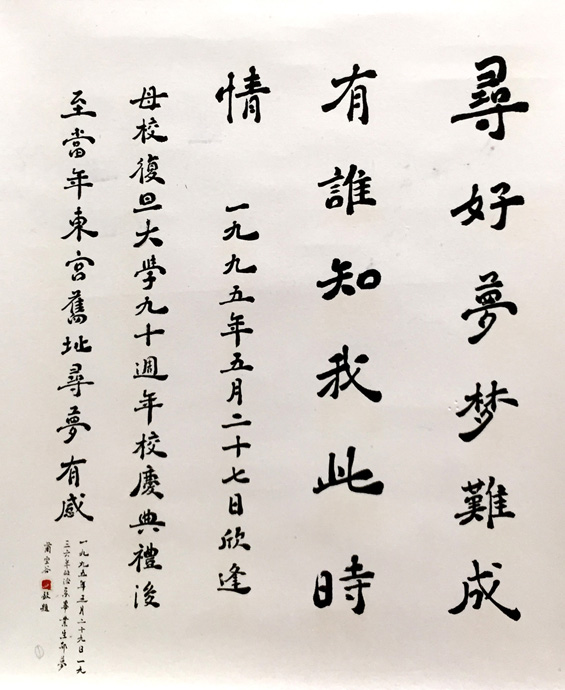 尋好夢梦難成
有誰知我此時
情
一九九五年五月二十七日欣逢
母校復旦大學九十週年校慶典禮後
至當年東宮舊址尋夢有感
一九九五年三月二十九日一九
三六年政治系畢業生鄒夢
敬題